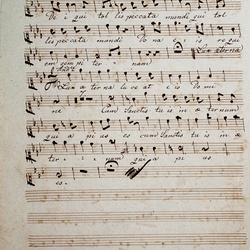 De i qui tol lis peccata mundi qui tol
lis peccata mundi Dona e is re qui
Lux æterna
em sem pi ter nam
Lux æ ter na luce at e is Do mi
ne Cum Sanctis tu is in æ ter num
qui a pi us es cum Sanctis tu is in æ
ter num qui a pi us
es.